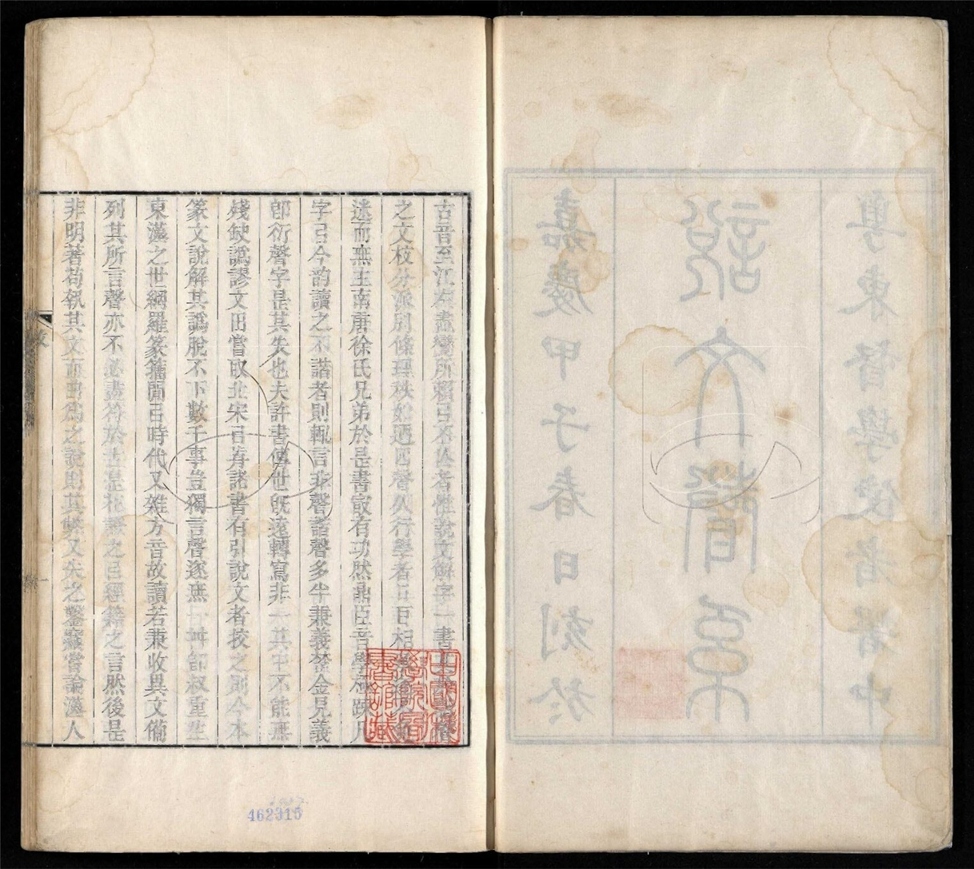 嘉慶甲子春日刻於
說文聲系
粵東督學使者署中
古音至江左盡變所賴㠯不者惟說文解字一書其
之文枝分派別條理秩如迺四聲久行學者㠯目相
迷而無主南唐徐氏兄弟於是書㝡有功然鼎臣音學凡
字㠯今韵讀之不諧者則輒言非聲諧聲多半兼義楚金見義
卽衍聲字是其失也夫許書傳世旣遠轉寫非一其不能無
殘缺譌謬文田嘗取北宋㠯前諸書有引說文者挍之則今本
篆文說解其譌脫不下數千事豈獨言聲逐無一卽叔重生
東漢之世網羅篆籒間㠯時代又雜方音故讀若兼收異文備
列其所言聲亦不必盡符於古之㠯經籍之言然後是
非明著茍執其文而曲爲之說則其弊又失之鑿竊嘗論漢人
462315